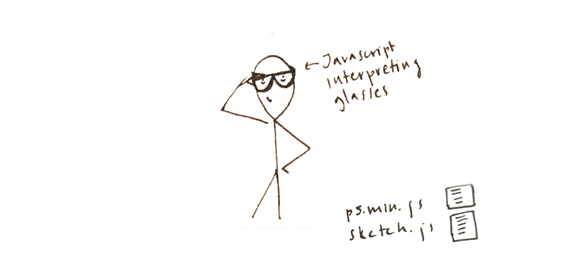 ← Javascript
interpreting
glasses
p5.min.js
sketch.js